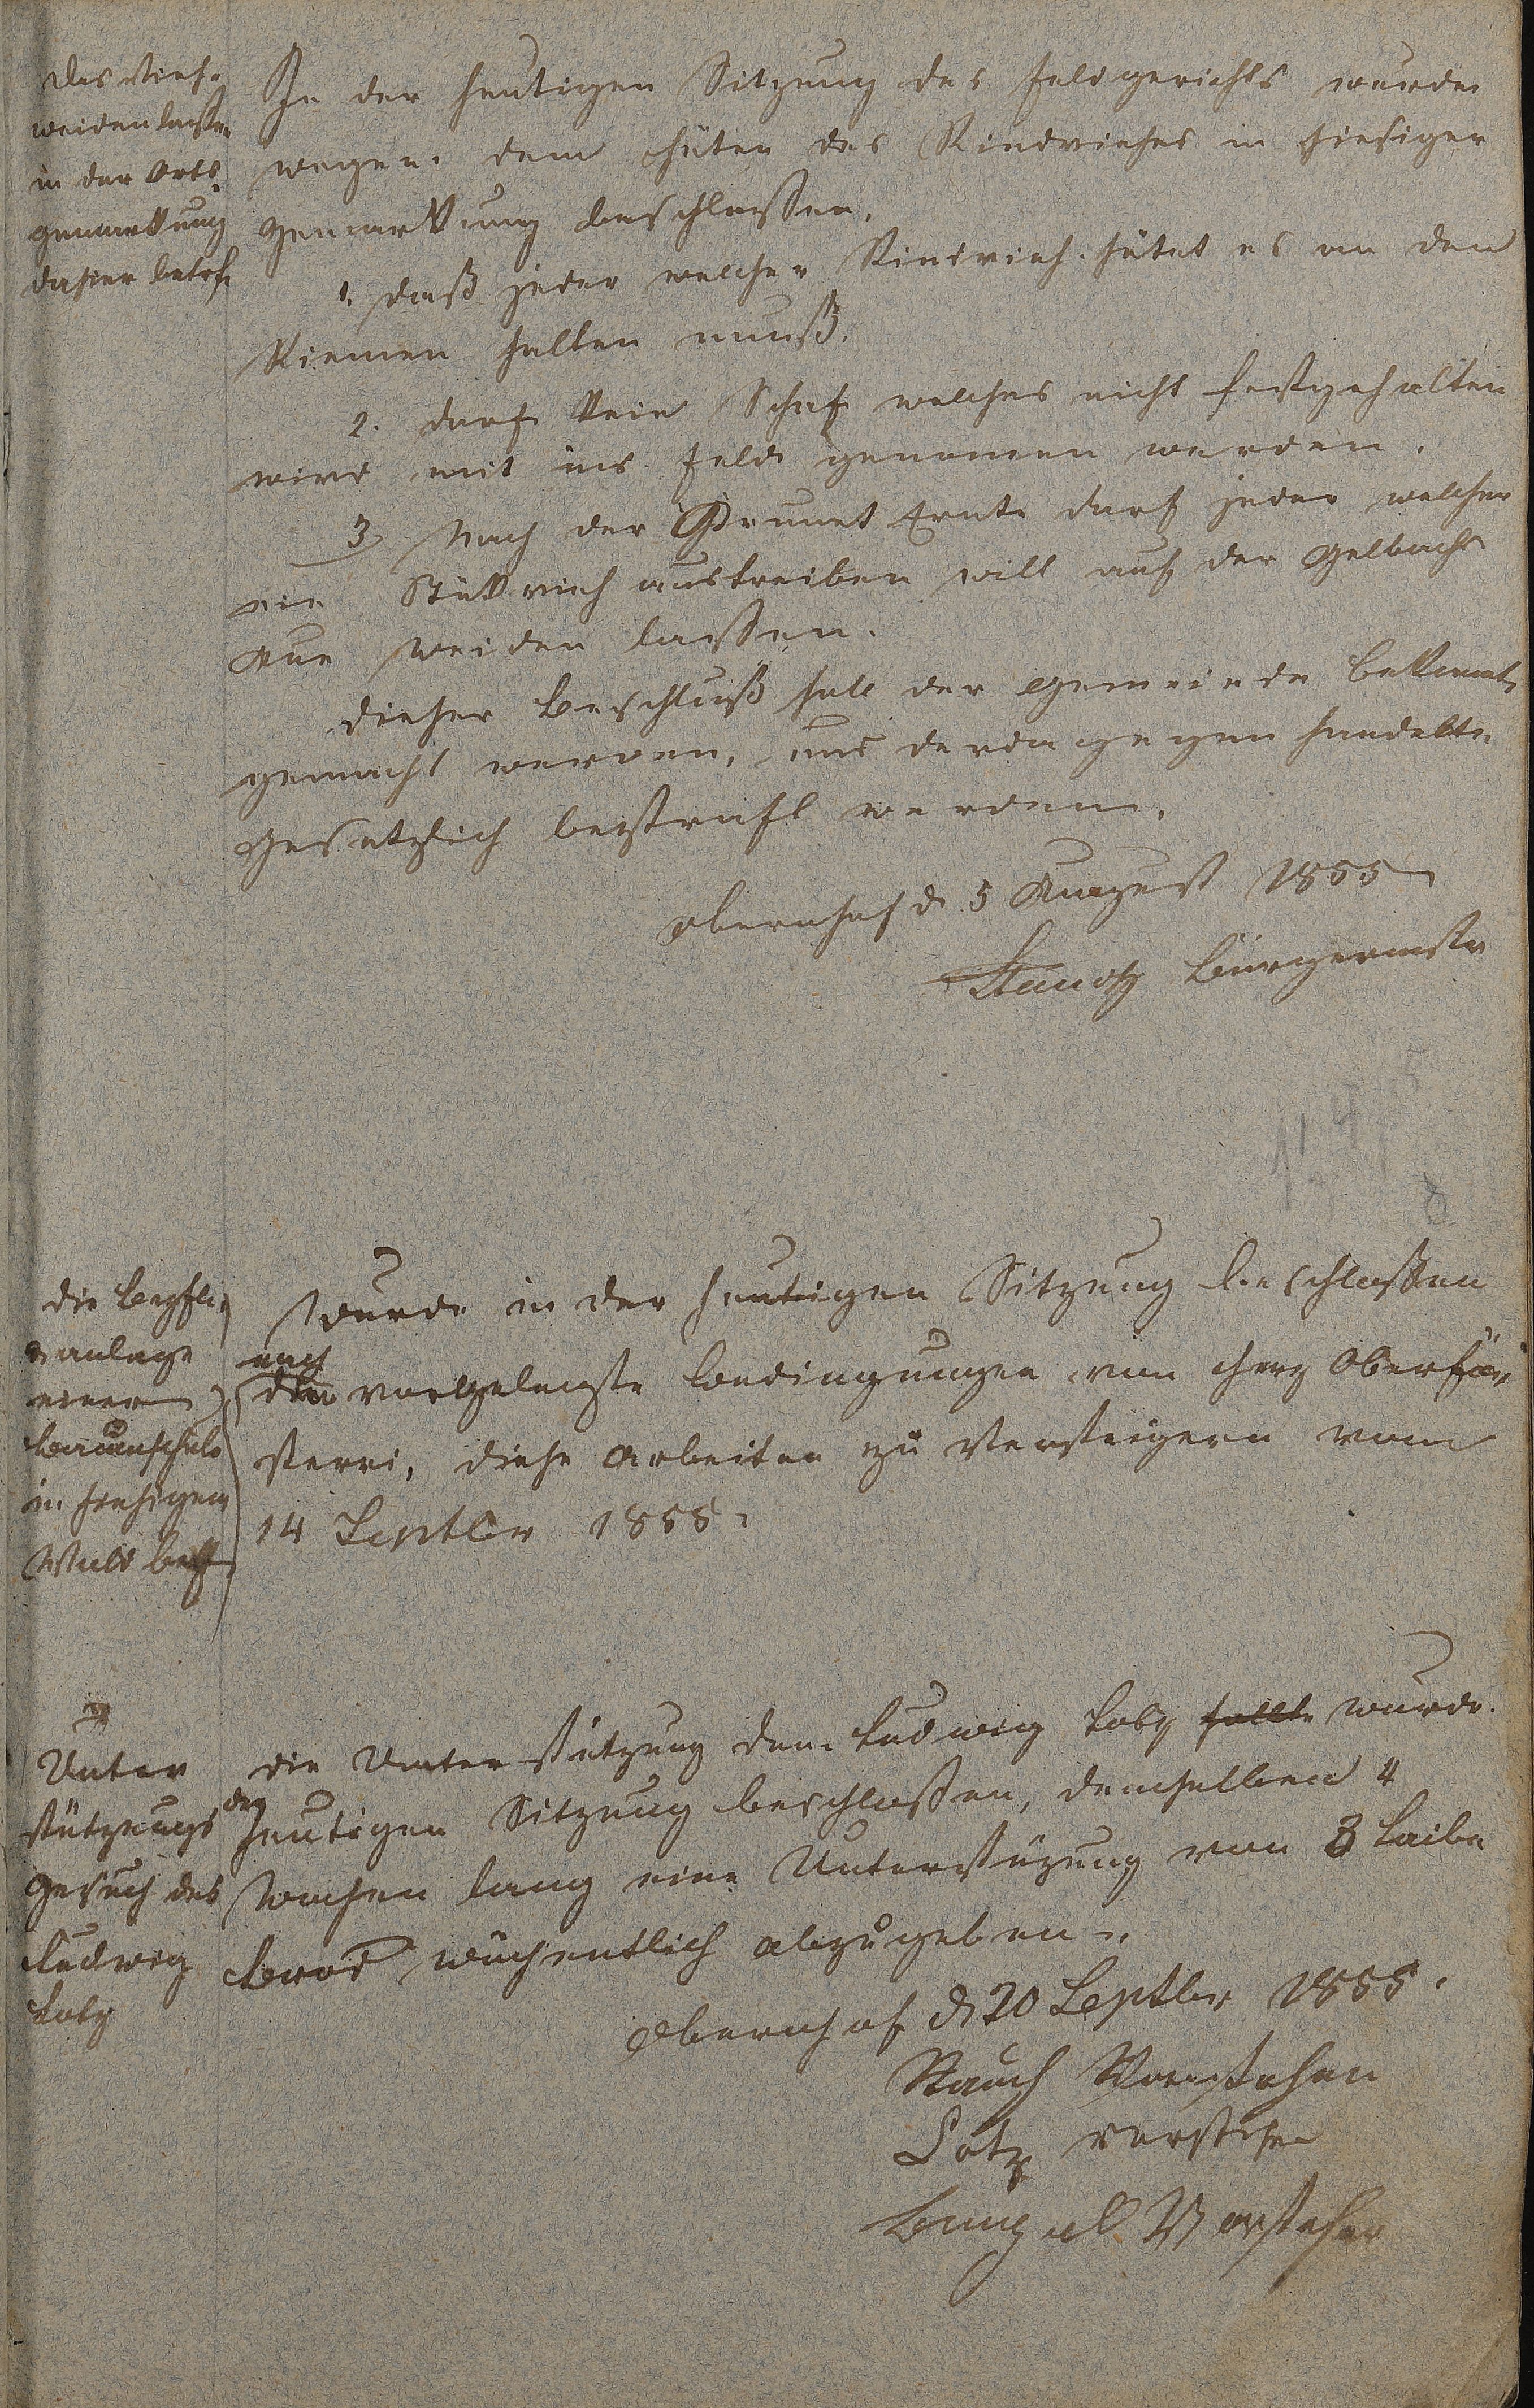 Das Vieh-
weiden lassen
in der Orts-
gemarkung
dahier betrf.
In der heutigen Sitzung des Feldgerichts wurde
wegen dem hüten des Rindviehes in hiesiger
Gemarkung beschlossen.
1. daß jeder welcher Rindvieh hütet es an den
Riemen halten muß.
2. darf kein Schaf welches nicht festgehalten
wird mit ins Feld genomen werden.
3 Nach der Grumet Ernte darf jeder welcher
ein Stükvieh austreiben will auf der Gelbachs
Aue weiden laßen.
Dieser Beschluß soll der Gemeinde bekannt
gemacht werden, und dagegen handelte
Gesetzlich bestraft werden.
Obernhof d. 5 August 1855
Bürgermstr
Die
anlage
einer
Baumschule
in hiesigem
Wald betf.
Wurde in der heutigen Sitzung beschloßen
nach
den vorgelegte Bedingungen von Herz Oberför-
sterei, diese Arbeiten zu Versteigern vom
14 Septbr 1855.
Unter
stützungs
Gesuch des
Ludwig
Lotz
die Unterstützung dem Ludwig Lotz sollte wurde
der
heutigen Sitzung beschloßen, demselben 4
Wochen lang eine Unterstüzung von 3 Laibe
Brod wöchentlich abzugeben.
Obernhof d 20 Septbr 1855.
Rauch Vorsteher
Lotz Vorsteher
Vorsteher